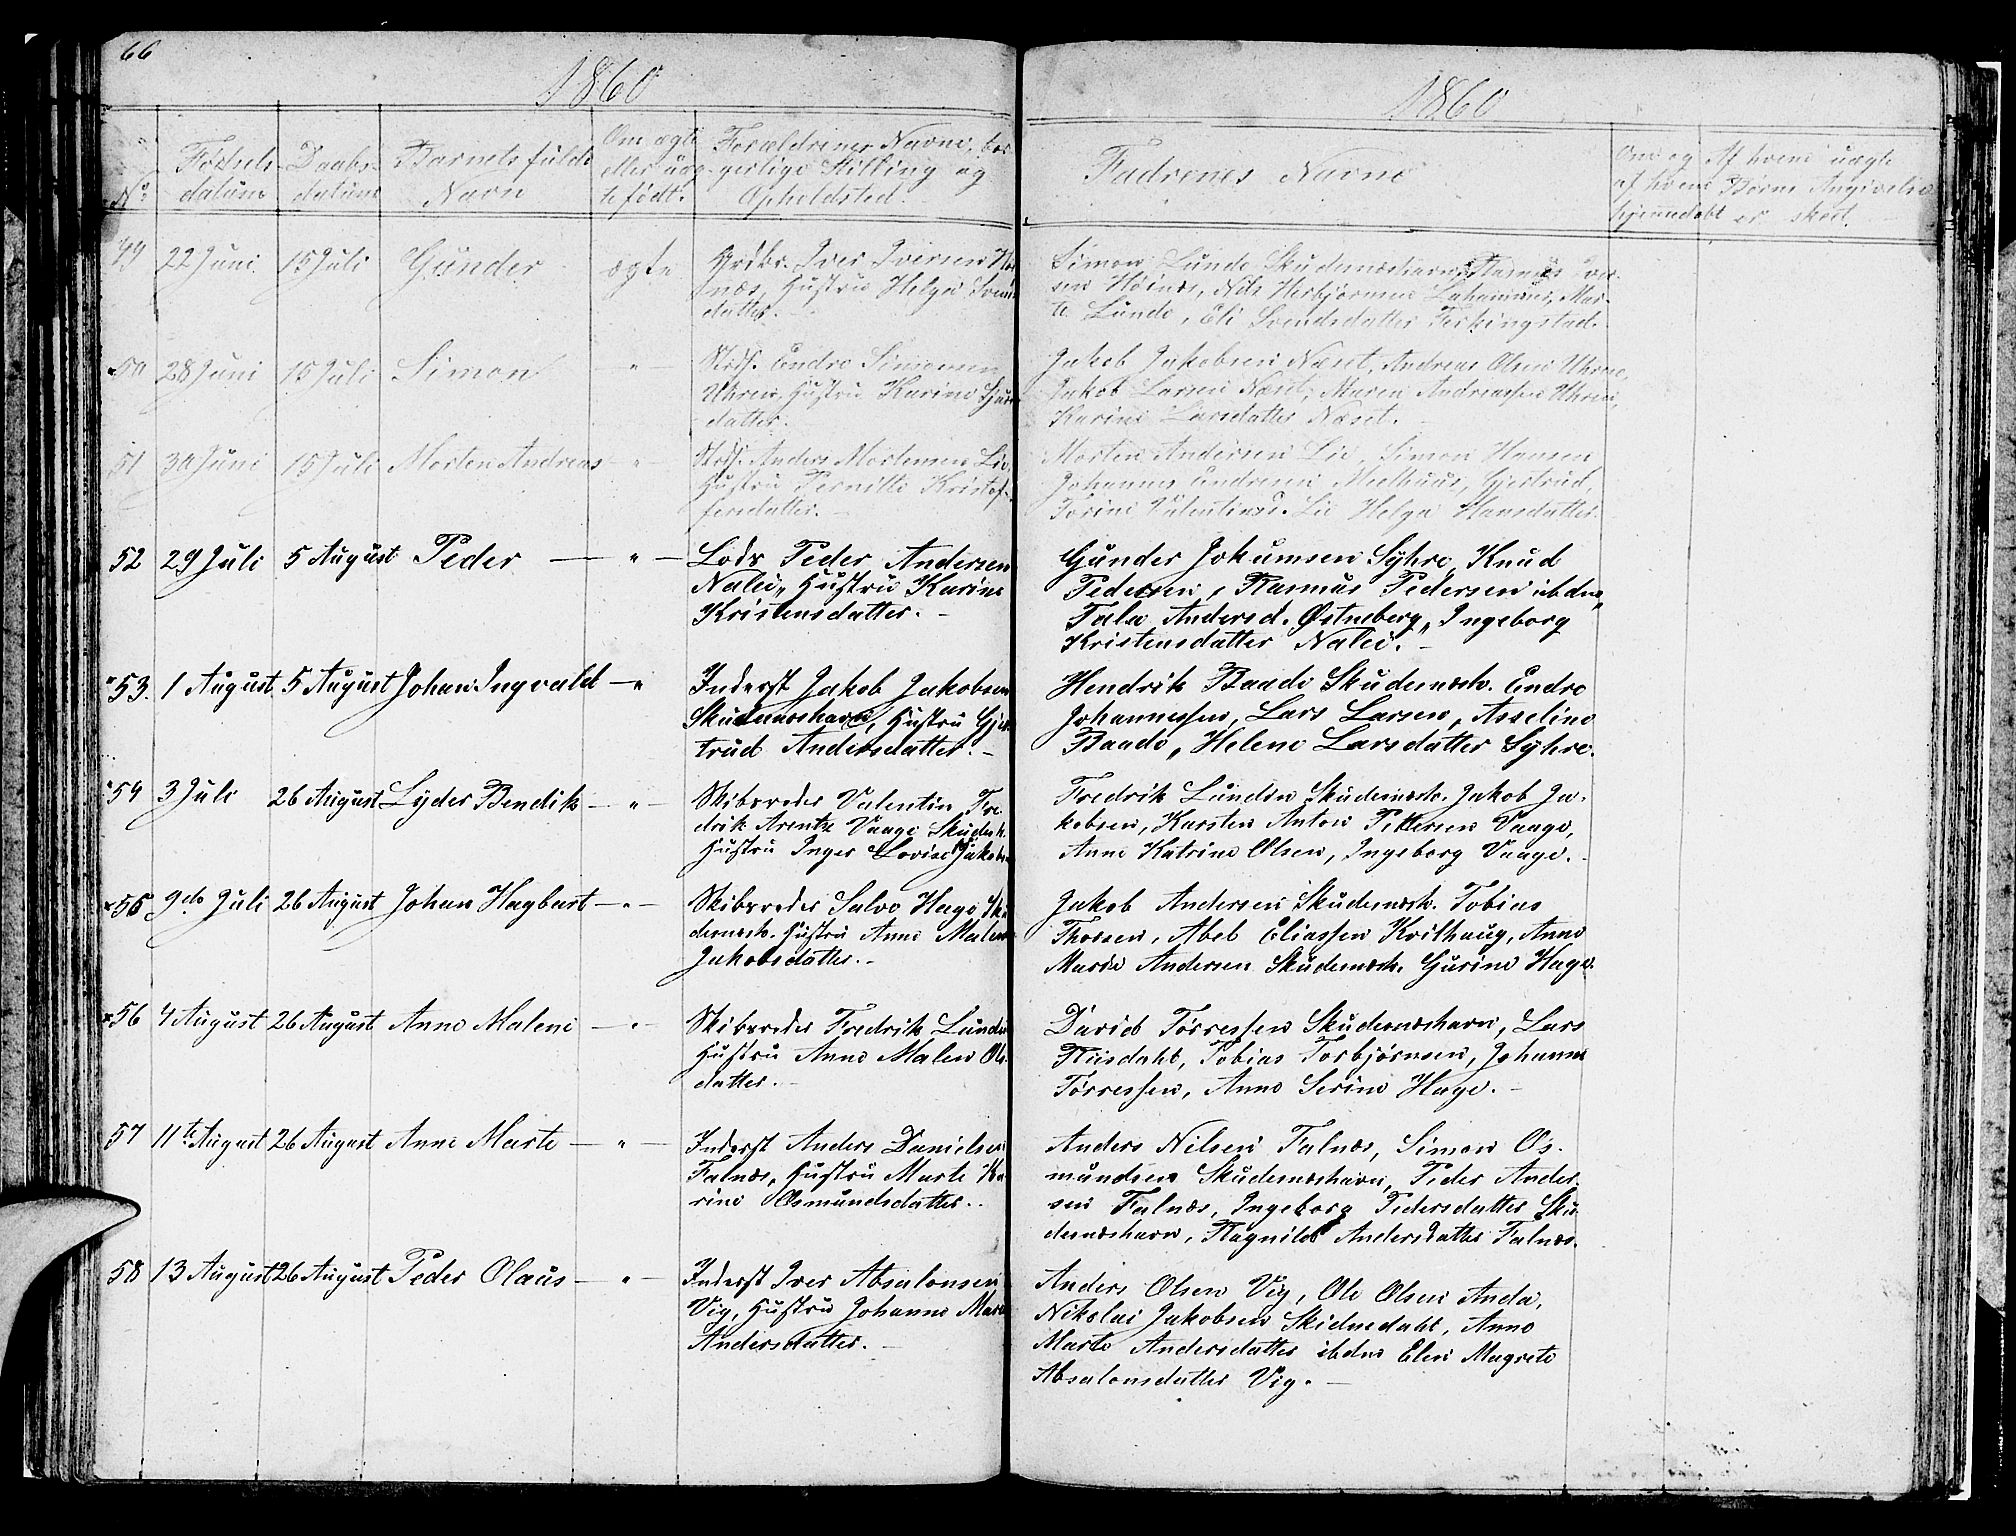 66
1860
1860
No
Fødsels-
datum
Daabs-
datum
Barnets fulde
Navn
Om ægte
eller uæg-
te født.
Forældrenes Navne, bor-
gerlige Stilling og
Opholdsted.
Fadrenes Navne
Om og
af hvem
hjemmedøbt
Af hvem uægte
Børns Angivelse
er skeet.
49 22 Juni 15 Juli Gunder ægte
Grdbr. Iver Iversen
næs, Hustru Helga
datter.
Simon Lunde Skudesneshavn, Rasmus Iver-
sen Høines, Nils Herbjørnsen
te Lunde, Eli Svendsdatter Ferkingstad.
50 28 Juni 15 Juli Simon — " —
Endre Simonsen
Uhren, Hustru Karine
datter.
Jakob Jakobsen Næset, Andreas Olsen Uhrne,
Jakob Larsen Næset, Maren Andreassen Uhren,
Karine Larsdatter Næset.
51 30 Juni 15 Juli Morten Andreas — " —
Anders Mortensen Lie,
Hustru Pernille Kristof-
fersdatter. —
Morten Andersen Lie, Simon Hansen
Johannes Endresen Meelhuus, Gjertrud,
Torine Valentinsd. Lie Helga Hansdatter
52 29 Juli 5 August Peder — " —
Lods Peder Andersen
Nalei, Hustru Karine
Kristensdatter. —
Gunder Jokumsen Syhre, Knud
Pedersen, Rasmus Pedersen ibdne,
Tala Andersd. Østneberg, Ingeborg
Kristensdatter Nalei. —
53. 1 August 5 August Johan Ingvald — "
Inderst Jakob Jakobsen
Skudesneshavn, Hustru Gjer-
trud Andersdatter. —
Hendrik Baade Skudesnesh. Endre
Johannessen, Lars Larsen, Asseline
Baade, Helene Larsdatter Syhre.
54 3 Juli 26 August Lyder Bendik — " —
Skibsreder Valentin Fre-
drik Arentz Vaage Skudesh.
Hustru Inger Lovise Jakobs
Fredrik Lunden Skudesnesh. Jakob Ja-
kobsen, Karsten Anton Pettersen Vaage,
Anne Katrine Olsen, Ingeborg Vaage. —
55 9de Juli 26 August Johan Hagbart — " —
Skibsreder Salve Hage Sku
desnesh. Hustru Anne Malene
Jakobsdatter. —
Jakob Andersen Skudesnesh. Tobias
Thorsen, Abel Eliassen Kvilhaug, Anne
Marie Andersen Skudesnesh. Gurine Hage.
56 4 August 26 August Anne Malene — " —
Skibsreder Fredrik Lunde
Hustru Anne Malen Ols
datter. —
David Tørressen Skudesneshavn, Lars
Tobias Torbjørnsen, Johanne
Tørressen, Anne Serine Hage. —
57 11te August 26 August Anne Marte — " —
Inderst Anders Danielsen
Falnæs, Hustru Marte Ka
rine Osmundsdatter. —
Anders Nilsen Falnæs, Simon Os-
mundsen Skudesneshavn, Peder Ander-
sen Falnæs, Ingeborg Pedersdatter Sku-
desneshavn, Ragnild Andersdatter Falnæs.
58 13 August 26 August Peder Olaus — " —
Inderst Iver Absalonsen
Vig, Hustru Johanne Marie
Andersdatter. —
Anders Olsen Vig, Ole Olsen Anda,
Nikolai Jakobsen Skidnedahl, Anne
Marte Andersdatter ibdne Elen Magrete
Absalonsdatter Vig. —